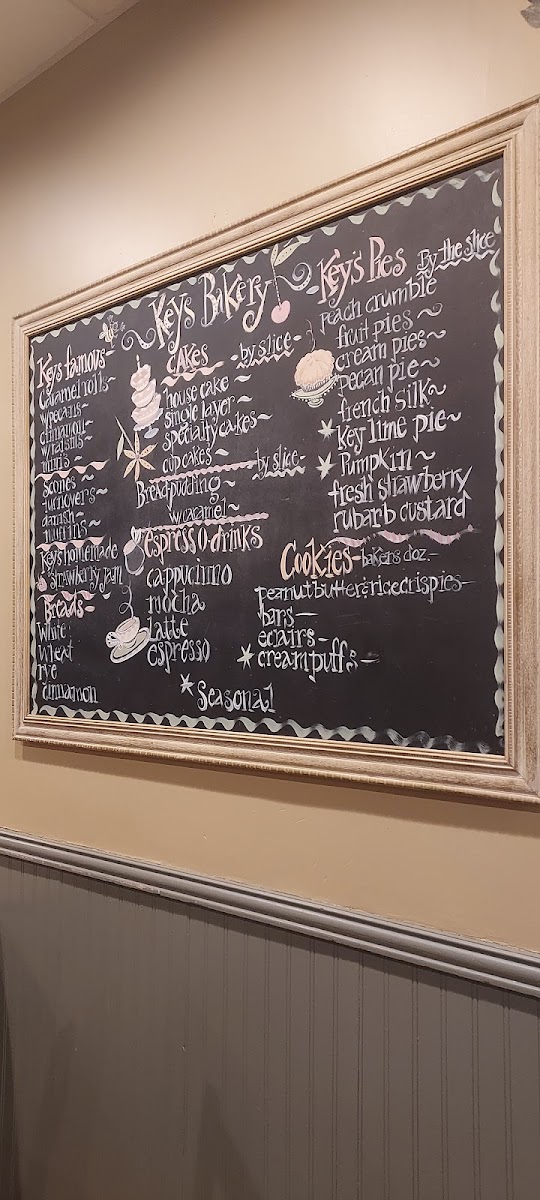 Key's Bakery
Keys famous-
Caramel rolls~
w/pecans~
cinnamon~
w/raisins~
scones~
turnovers~
danish~
muffins~
Keys homemade
Strawberry Jam
Breads-
White
Wheat
rye
cinnamon
CAKes -by slice-
house cake ~
single layer ~
specialty cakes~
cup cakes~
-by slice-
Bread pudding ~
w/caramel~
espresso drinks
cappucinno
mocha
latte
espresso
* Seasonal
Key's Pies By the slice
peach crumble
fruit pies ~
cream pies~
pecan pie~
french silk~
* key lime pie~
* Pumpkin ~
fresh strawberry
rubarb custard
Cookies-bakers doz.-
peanutbutter:ricecrispies-
bars-
eclairs-
* creampuffs-